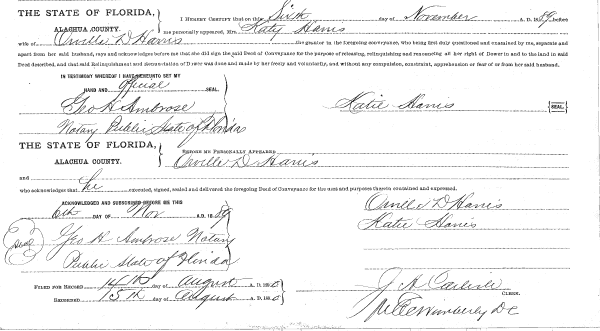 THE STATE OF FLORIDA,
ALACHUA COUNTY.
I HEREBY CERTIFY that on this Sixth day of November A. D. 1889 before
me personally appeared, Mrs. Katy Harris
wife of Orville D Harris the grantor in the foregoing conveyance, who being first duly questioned and examined by me, separate and
apart from her said husband, says and acknowledges before me that she did sign the said Deed of Conveyance for the purpose of releasing, relinquishing and renouncing all her right of Dower in and to the land in said
Deed described, and that said Relinquishment and Renunciation of Dower was done and made by her freely and voluntarily, and without any compulsion, constraint, apprehension or fear of or from her said husband.
IN TESTIMONY WHEREOF I HAVE HEREUNTO SET MY
HAND AND official SEAL.
Geo H Ambrose
Katie Harris (SEAL)
Notary Public State of Florida
THE STATE OF FLORIDA,
ALACHUA COUNTY.
BEFORE ME PERSONALLY APPEARED
Orville D Harris
and
who acknowledges that he executed, signed, sealed and delivered the foregoing Deed of Conveyance for the uses and purposes therein contained and expressed.
ACKNOWLEDGED AND SUBSCRIBED BEFORE ME THIS
6th DAY OF Nov A. D. 1889
Orville D Harris
Katie Harris
Seal Geo H Ambrose Notary
Public State of Florida
FILED FOR RECORD 14th day of August A. D. 1890
RECORDED 15th day of August A. D. 1890
J A Carlisle
CLERK.
Wimberly D C